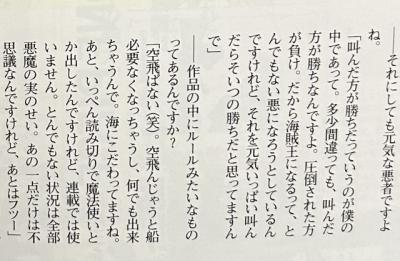 ――それにしても元気な悪者ですよ
ね。
「叫んだ方が勝ちだっていうのが僕の
中であって。多少間違ってても、叫んだ
方が勝ちなんですよ。圧倒された方
が負け。だから海賊王になるって、と
んでもない悪になろうとしているん
ですけれど、それを元気いっぱい叫ん
だらそいつの勝ちだと思ってますん
で」
――作品の中にルールみたいなもの
ってあるんですか？
「空飛ばない(笑)。空飛んじゃうと船
必要なくなっちゃうし、何でも出来
ちゃうんで。海にこだわってますね。
あと、いっぺん読み切りで魔法使いと
か出したんですけれど、連載では使
いません。とんでもない状況は全部
悪魔の実のせい。あの一点だけは不
思議なんですけれど、あとはフツー」